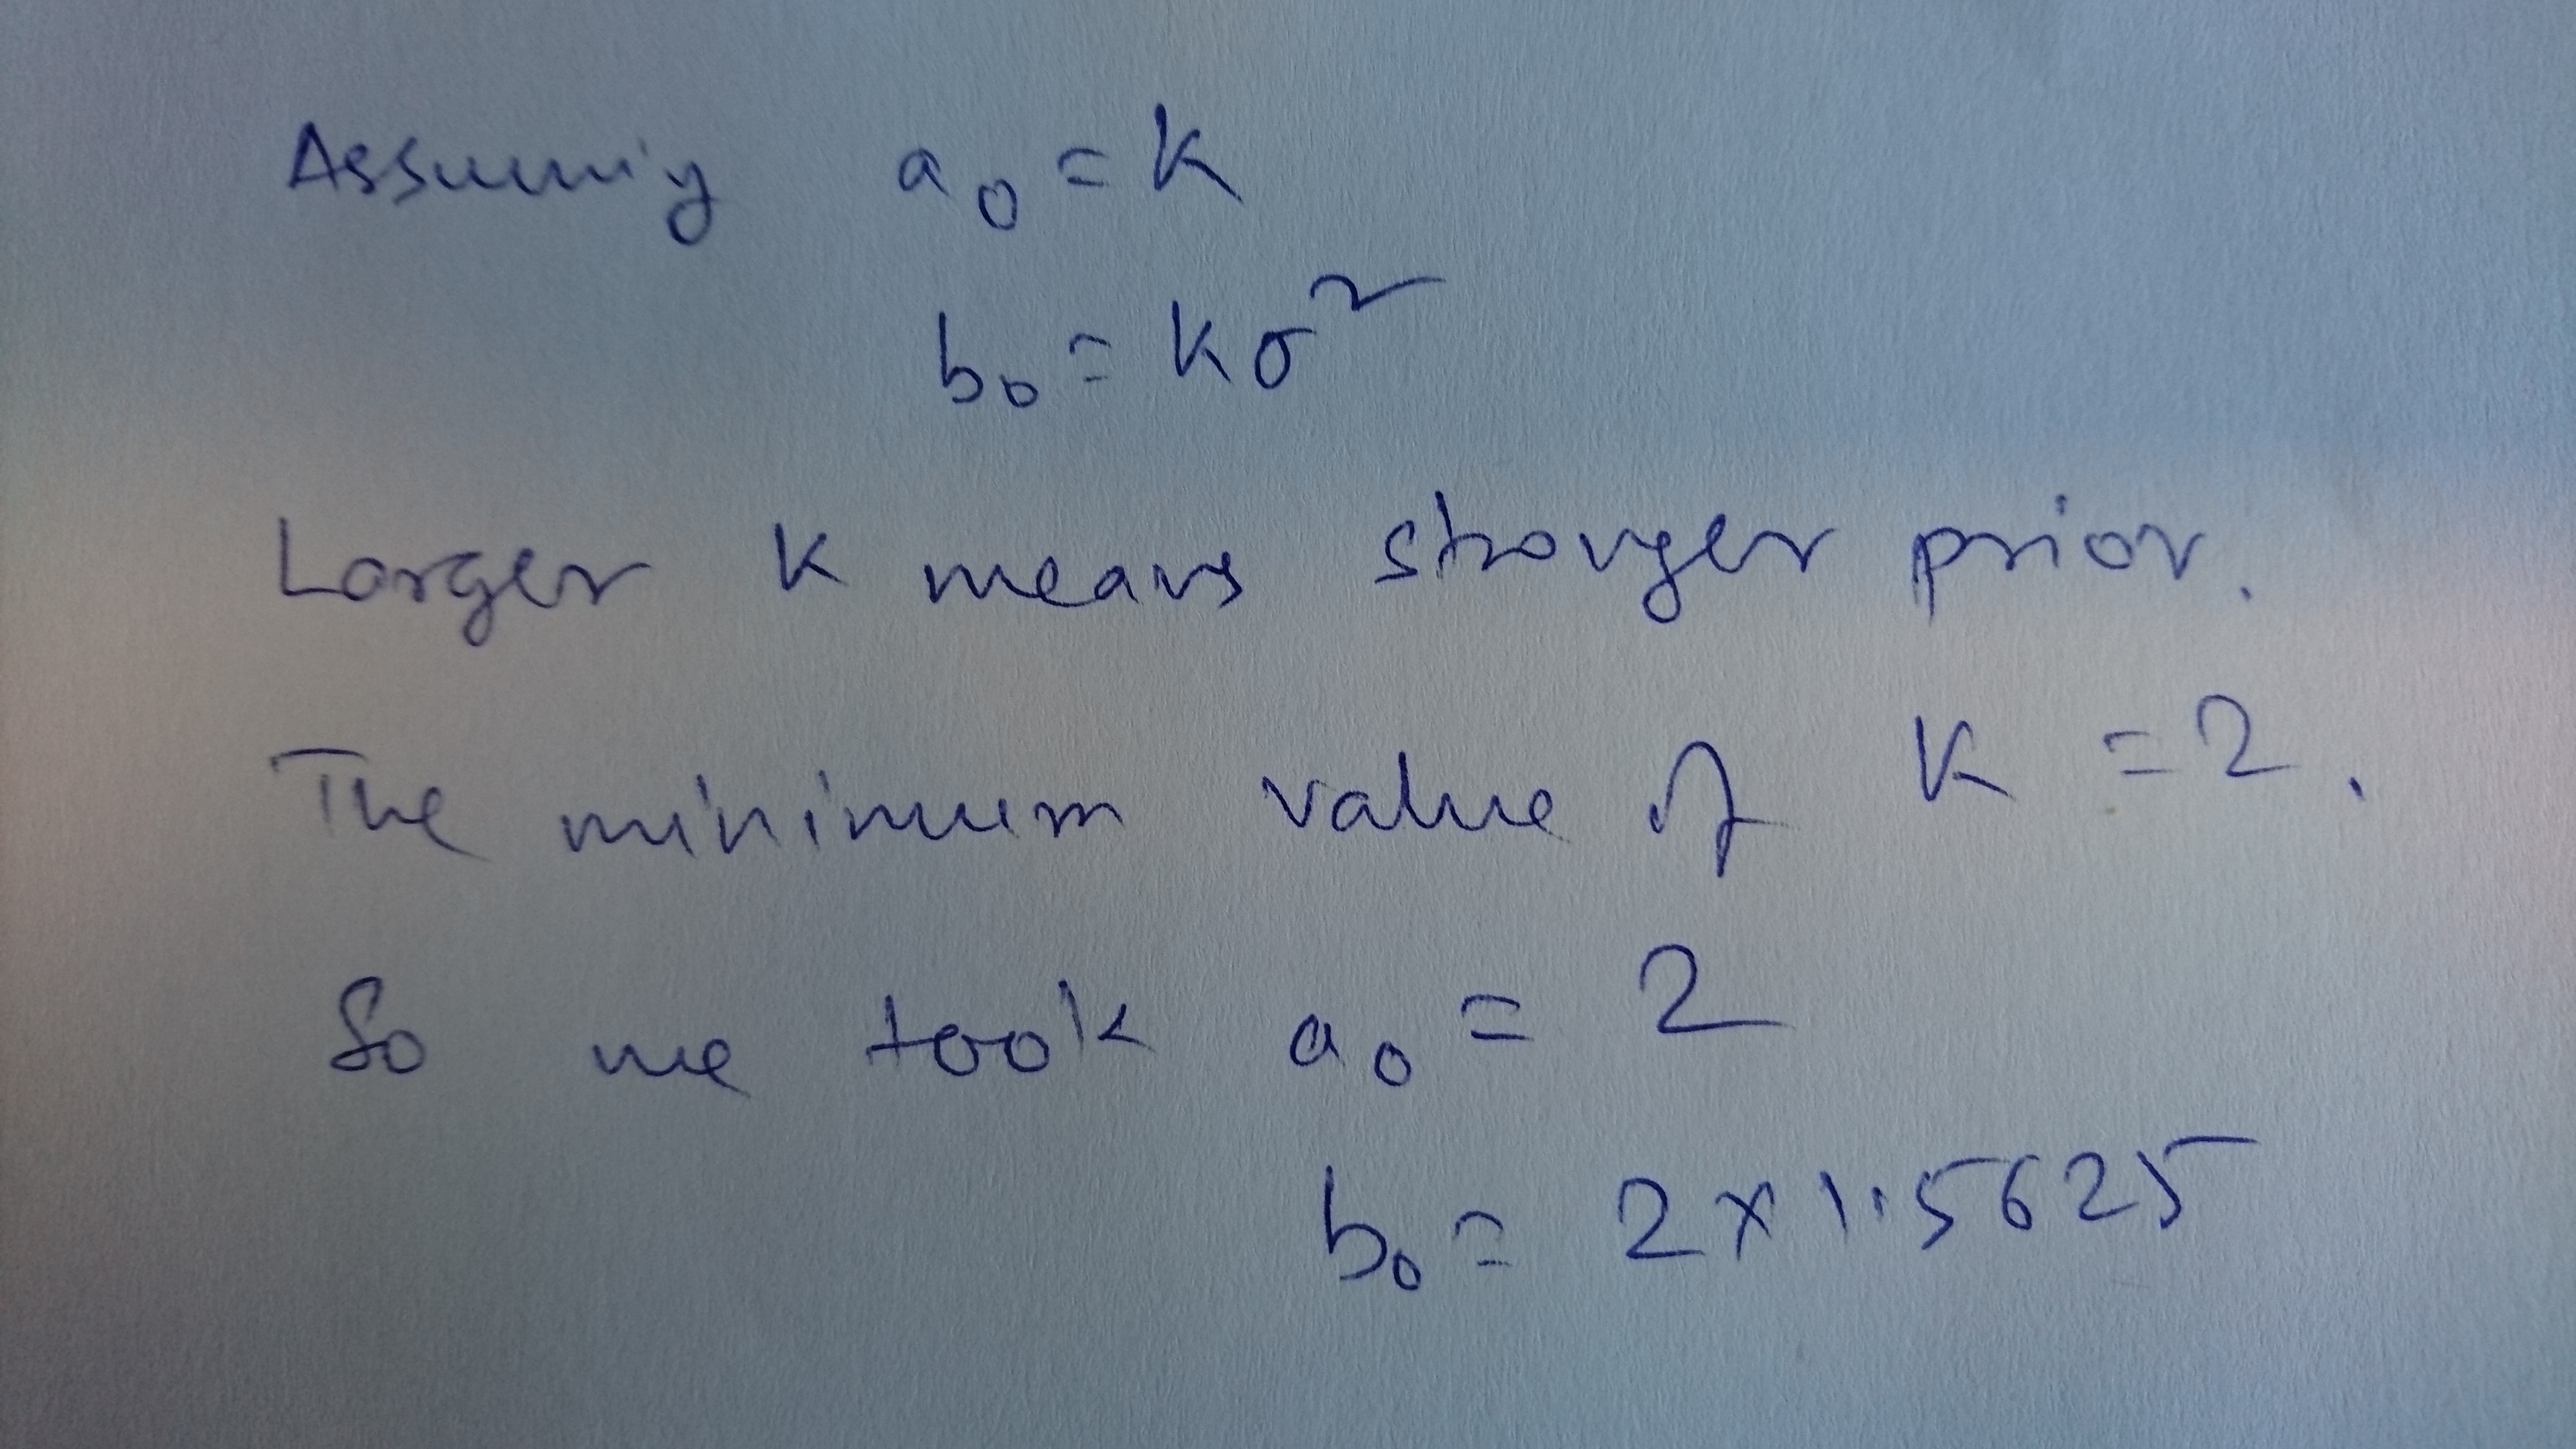 Assuming a₀ = K
b₀ = Kσ²
Larger K means stronger prior.
The minimum value of K = 2.
So we took a₀ = 2
b₀ = 2 × 1.5625